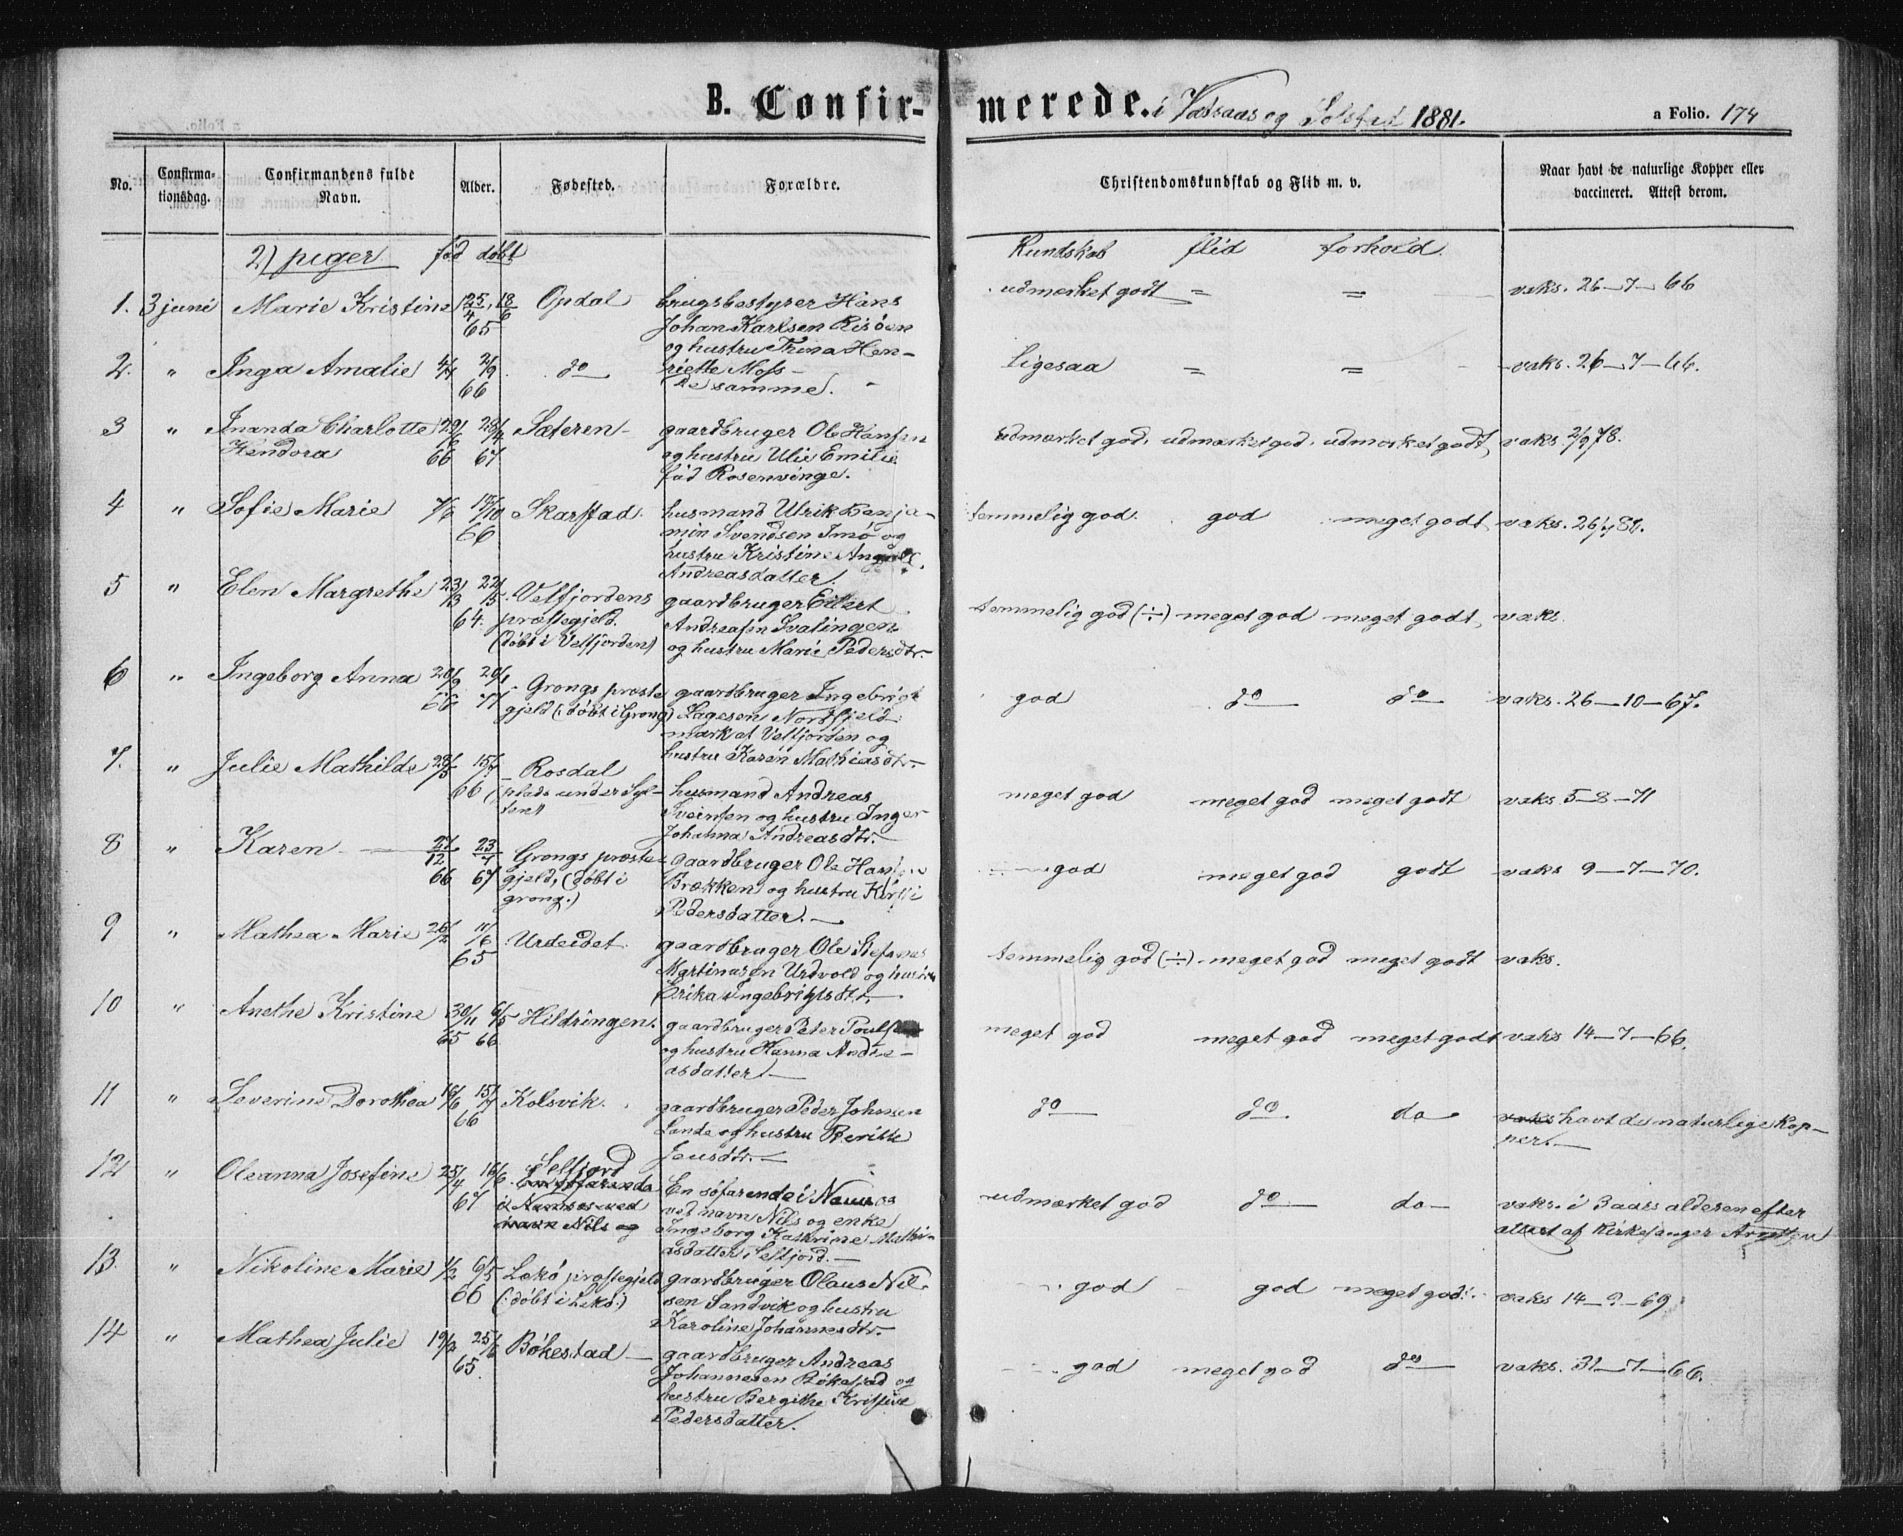 B. Confirmerede. i Vatraas og Solstad 1881. a Folio. 174
No. Confirmationsdag. Confirmandens fulde Navn. Alder. Fødested. Forældre. Christendomskundskab og Flid m. v. Naar havt de naturlige Kopper eller vaccineret. Attest derom.
2) piger fød døbt Kundskab flid forhold.
1. 3 juni Marie Kristine 25/4 18/6 65 Opdal
brugsbestyrer Hans
Johan Karlsen Risøen
og hustru Trina Hen-
riette Moss
udmerket godt = = vaks. 26-7-66
2. " Inga Amalie 4/4 2/9 66 do
De samme.
ligesaa = = vaks. 26-7-66.
3 " Inanda Charlotte 29/6 66 28/4 67 Sæteren
Hendora
gaardbruger Ole Hansen
og hustru Ulie Emilie
fød Rosenvinge.
udmærket god. udmærket god. udmærket godt vaks. 2/9 78.
4 " Sofie Marie 7/6 14/10 66 Skarstad.
husmand Ulrik Benja-
min Svendsen Imø og
hustru Kristine
Andreasdatter.
temmelig god. god meget godt
5 " Elen Margrethe 64. Velfjordens
præstegjeld.
(døbt i Velfjorden)
gaardbruger Eilert
Andreasen Svalingen
og hustru Marie Pedersdtr.
temmelig god (÷) meget god meget godt vaks.
6 " Ingeborg Anna 20/9 66 Grongs præste
gjeld (: døbt i Grong)
gaardbruger Ingebrigt
Lagesen Nordfjeld
mark at Velfjorden og
hustru Karen Mathiasdtr.
god do do vaks. 26-10-67.
7. " Julie Mathilde 66 Rosdal
(plads under Syl-
husmand Andreas
Sveinsen og hustru Inger
Johanna Andreasdtr.
meget god meget god meget godt vaks 5-8-71
8 " Karen 27/12 66 23/7 67 Grongs præste-
gjeld, (døbt i
grong.)
gaardbruger Ole Hansen
Brækken og hustru
Pedersdatter.
god meget god godt vaks 9-7-70.
9 " Mathea Marie 26/2 11/6 65 Urdeidet.
gaardbruger Ole Stefanus
Martinusen Urdvold og hustru
Erika Ingebrigtsdtr.
temmelig god (÷) meget god meget godt vaks.
10 " Anethe Kristine 30/11 65 6/5 66 Hildringen.
gaardbruger Peter Poulsen
og hustru Hanna Andre-
asdatter.
meget god meget god meget godt vaks 14-7-66.
11 " Severine Dorothea 16/6 15/7 66 Kolsvik.
gaardbruger Peder Johnsen
Lande og hustru Berithe
Jensdtr.
do do. do vaks havt de naturlige kop-
per.
12 " Oleanna Josefine 25/4 16/6 67 Selfjord
En søfarende
i Namsos ved
navn Nils og
En søfarende i Namsos
ved navn Nils og enke
Ingeborg Katrine Mathi-
asdatter Selfjord.
udmærket god do do vaks. i 3 aars alderen efter
attest af kirkesanger Arntzen
13. " Nikoline Marie 1/2 6/5 66 Lekø præstegjeld
(: døbt i Lekø:)
gaardbruger Olaus Nil-
sen Sandvik og hustru
Karoline Johannesdtr.
god god meget god. vaks 14-9-69
14 " Mathea Julie 19/2 25/6 65. Bøkestad
gaardbruger Andreas
Johannesen Bøkestad og
hustru Bergithe Kristine
Pedersdatter.
god meget god do vaks. 31-7-66.